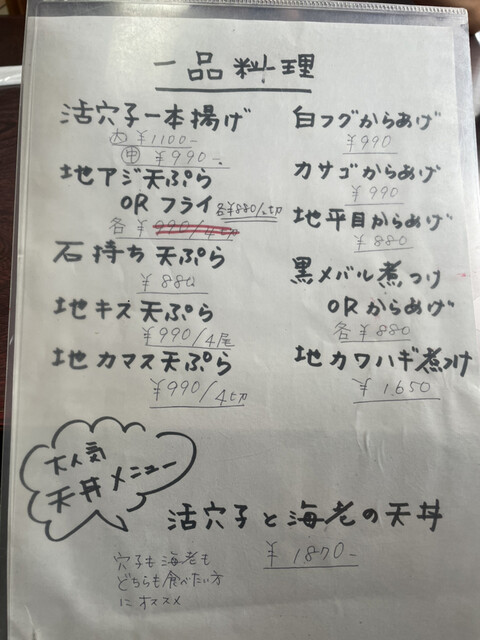 一品料理
活穴子一本揚げ
大 ¥1100-
中 ¥990-
地アジ天ぷら
OR フライ 各¥880/2切
各 ¥990/4切
石持ち天ぷら
¥880
地キス天ぷら
¥990/4尾
地カマス天ぷら
¥990/4切
白フグからあげ
¥990
カサゴからあげ
¥990
地平目からあげ
¥880
黒メバル煮つけ
ORからあげ
各¥880
地カワハギ煮つけ
¥1,650
大人気
天丼メニュー
活穴子と海老の天丼
¥1870-
穴子も海老も
どちらも食べたい方
にオススメ